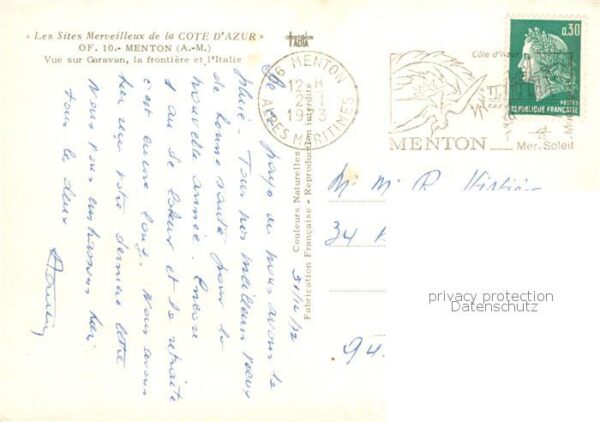 « Les Sites Merveilleux de la COTE D'AZUR »
OF. 10.- MENTON (A.-M.)
Vue sur Garavan, la frontière et l'Italie
06 MENTON
12-H
2-1
1973
ALPES MARITIMES
Côte d'Azur
MENTON
Mer. Soleil
0,30
POSTES
REPUBLIQUE FRANÇAISE
Couleurs Naturelles
Fabrication Française - Reproduction interdite
31/12/72
Le pays où nous avons la
pluie - Tous nos meilleurs vœux
de bonne santé pour la
nouvelle année. Encore
1 an de labeur et la retraite
c'est encore long. Nous avons
bien reçu votre dernière lettre
Nous vous embrassons bien
tous les deux
M. Me R
34
94
privacy protection
Datenschutz